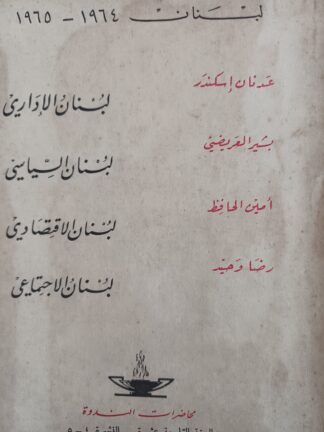 لبنان ١٩٦٤ - ١٩٦٥
عدنان إسكندر
لبنان الإداري
بشير العريضي
لبنان السياسي
أمين الحافظ
لبنان الاقتصادي
رضا وحيد
لبنان الاجتماعي
محاضرات الندوة